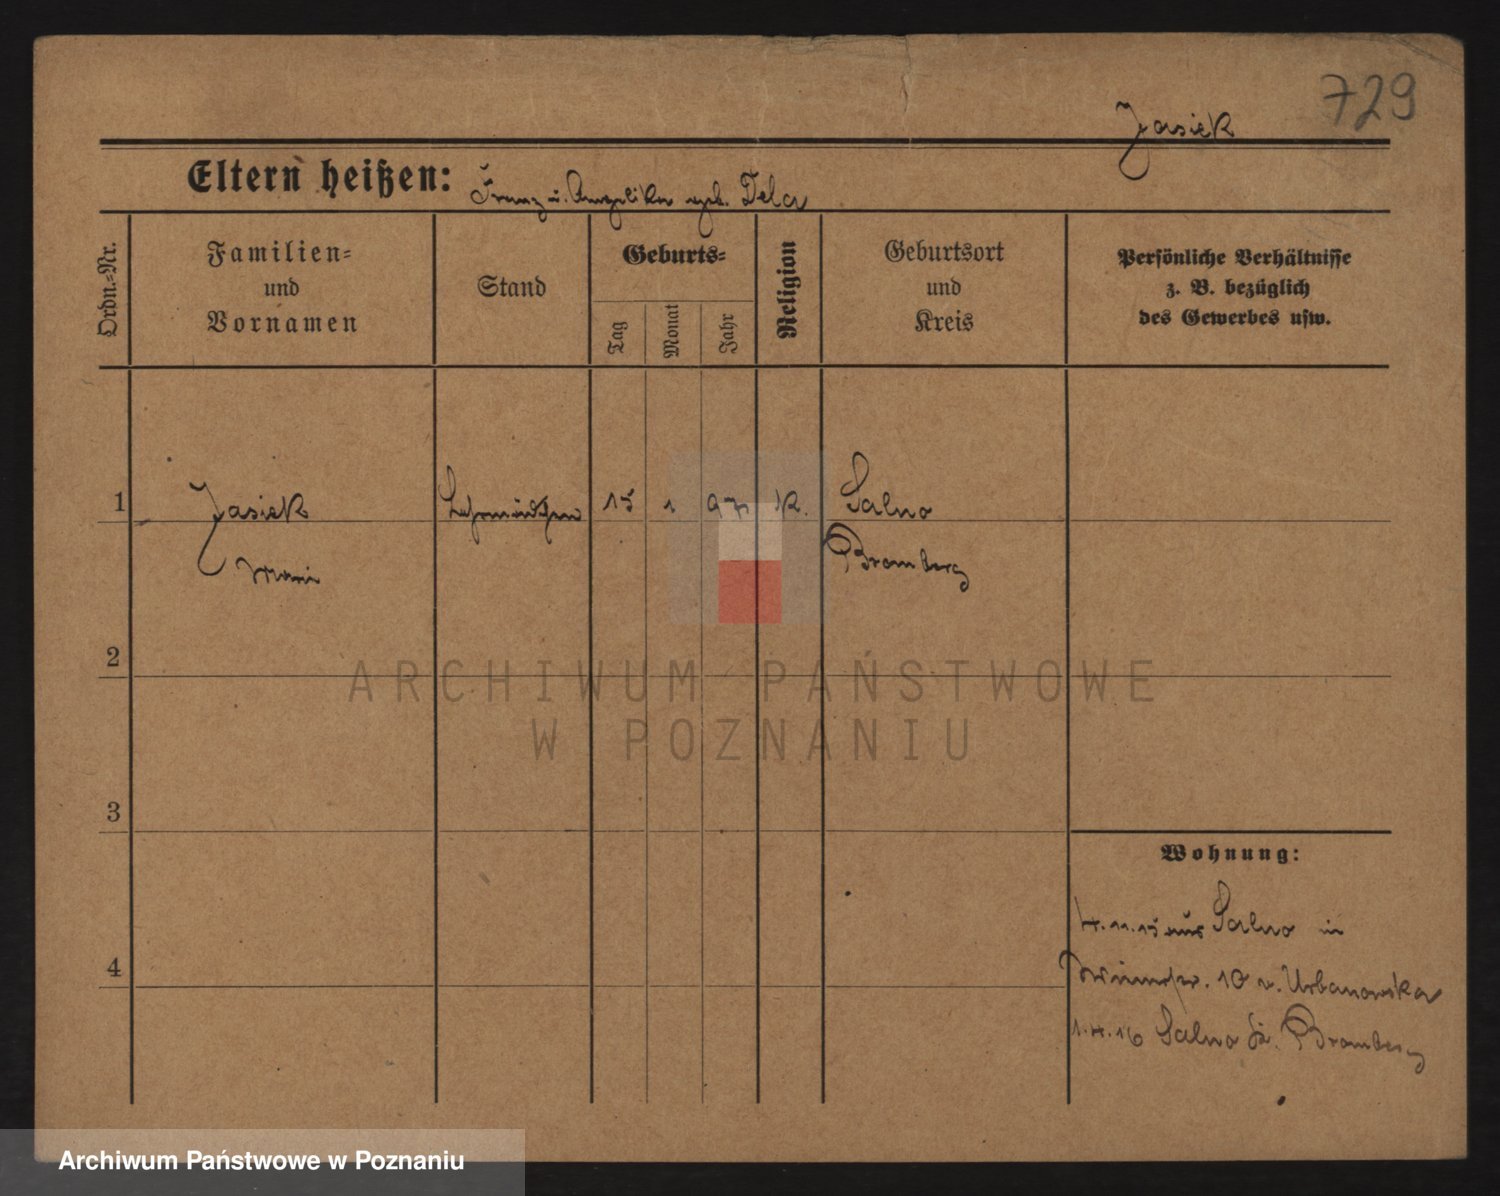 729
Jasiek
Eltern heißen: Franz u. Angelika geb. Dela
Ordn.-Nr.
Familien=
und
Vornamen
Stand
Geburts=
Tag
Monat
Jahr
Religion
Geburtsort
und
Kreis
Persönliche Verhältnisse
z. B. bezüglich
des Gewerbes usw.
1 Jasiek Lehrmädchen 15 1 97 k. Salno
Marie Bromberg
2
ARCHIWUM PAŃSTWOWE
W POZNANIU
3
Wohnung:
4.11.15 aus Salno in
10 v. Urbanowska
4
1.4.16 Salno Kr. Bromberg
Archiwum Państwowe w Poznaniu